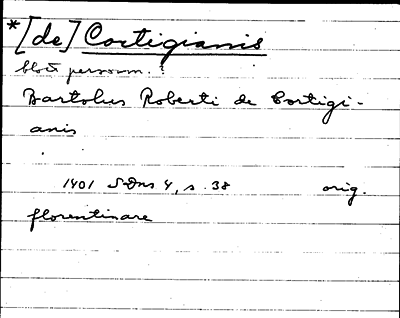 *[de] Cortigianis
blott personn.!
Bartolus Roberti de Cortigi-
anis
1401 SDns 4, s. 38 orig.
florentinare